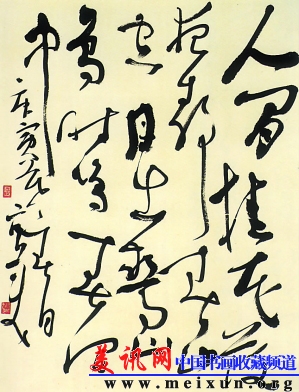 人閒桂花落
夜静春山
空月出驚山
鳥时鸣春涧
中
美讯网 中国书画收藏频道
www.meixun.org